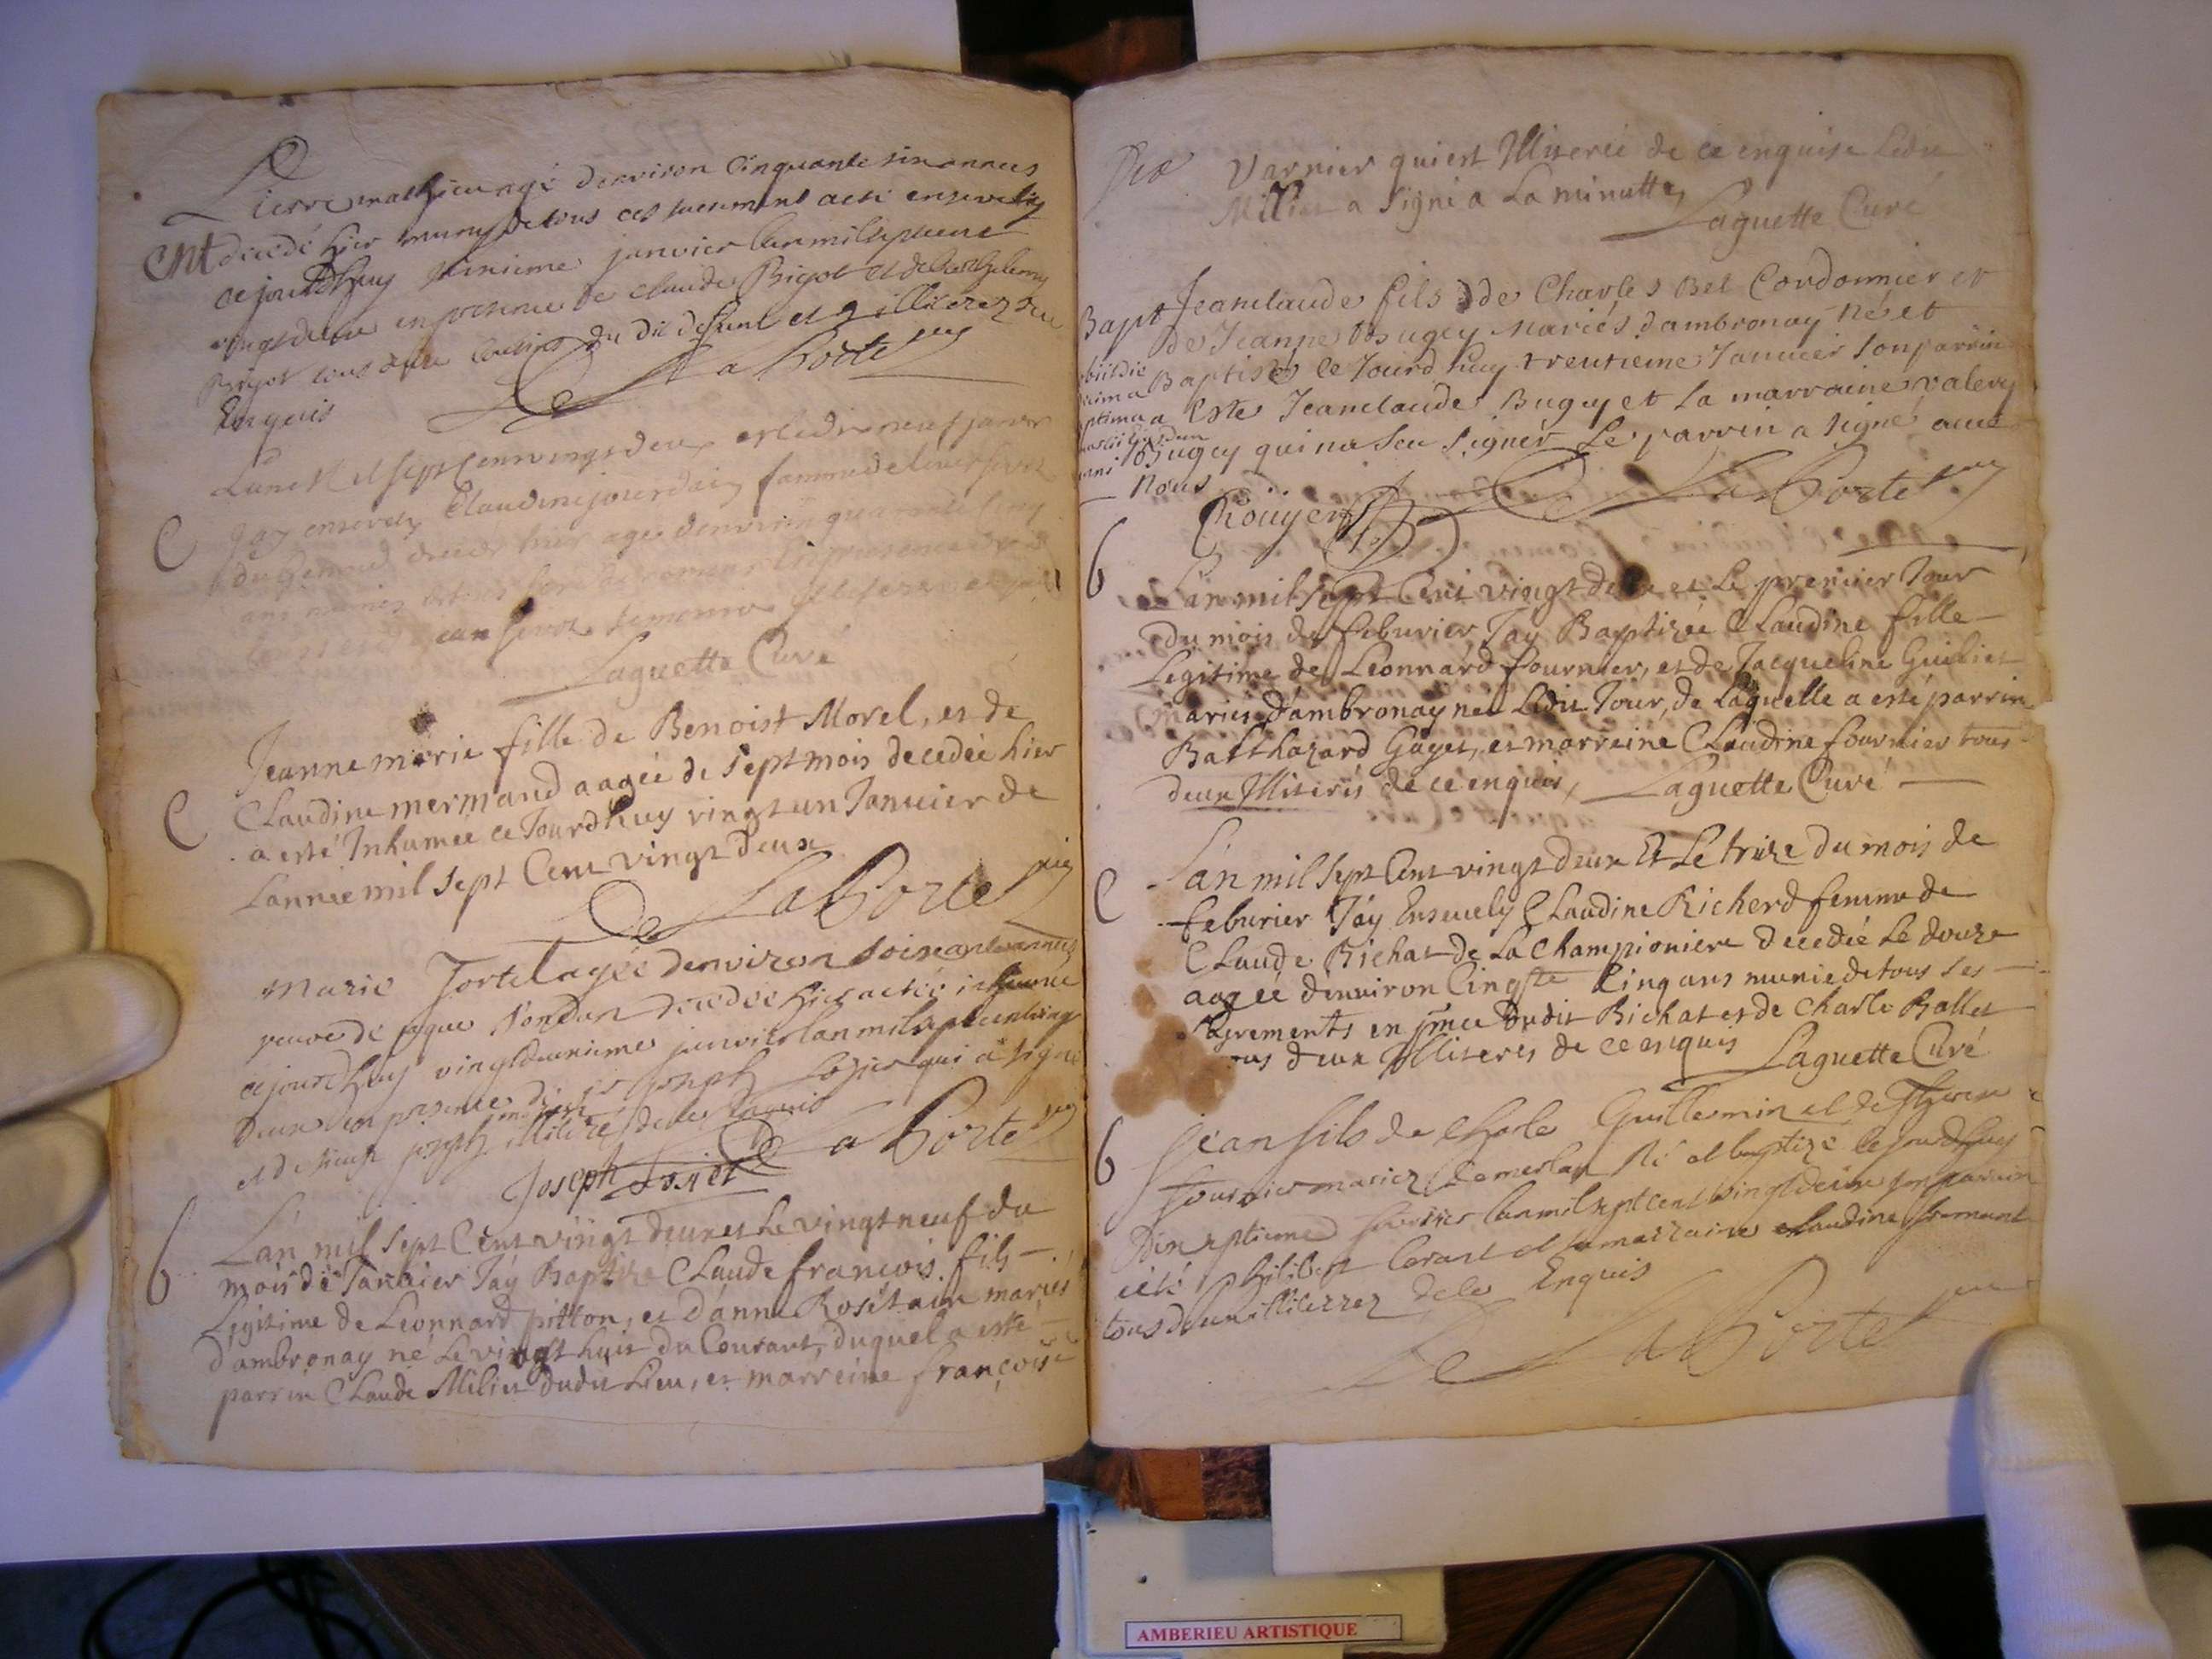 Pierre mathieu agé denviron Cinquante six années
Ent decedé hier muny de tous ces sacrement a eté ensevelis
ce jourdhuy janvier lan mil sept cent
vingt deux en presence de claude Bigot et de Barthelemy
Bigot tous deux cousins du dit defunt et illiterez de ce
Enquis De La Porte
Lan Mil sept Cent vingt deux et le dix neuf janvier
C Jay ensevely Claudine jourdain femme de
decedée hier agée denviron quarante cinq
ans munie de tous en presence de
jean temoins
Laguette Curé
Jeanne marie fille de Benoist Morel, et de
C Claudine mermand aagée de sept mois decedée hier
a esté Inhumée ce Jourdhuy vingt un Januier de
Lannée mil sept Cent vingt deux
De La Porte
Marie Tortel agée denviron soixante années
veuve de jaque decedée hier a eté inhumée
ce jourdhuy vingt deuxieme janvier lan mil sept cent vingt
Deux en presence de joseph Losier qui a signé
et de joseph illiteré de ce Enquis
De La Porte
Joseph Losier
b Lan mil sept Cent vingt deux et Le vingt neuf du
mois de Januier Jay Baptizé Claude françois fils
Legitime de Leonnard pitton, et danne Rosétain mariés
dambronay né Le vingt huit du Courant, duquel a esté
parrin Claude Milliet dudit Lieu, et marreine françoise
Varnier qui est Illiterée de ce enquise Ledit
Milliet a signé a La minutte, Laguette Curé
Bapt Jeanclaude fils de Charles Bel Cordonnier et
de Jeanne Bugey Mariés dambronay né et
Baptisé ce Jourdhuy trentieme Januier son parrin
Este Jeanclaude Bugey et la marraine valery
Bugey qui na sceu signer Le parrin a signé avec
Nous
De La Porte
b Lan mil sept Cent vingt deux et Le premier Jour
du mois de feburier Jay Baptizée Claudine fille
Legitime de Leonnard fournier, et de Jacqueline Guilliet
mariés dambronay née Ledit Jour, de Laquelle a esté parrin
Balthazard Gayet, et marreine Claudine fournier tous
deux Illiterés de ce enquis, Laguette Curé
C Lan mil sept Cent vingt deux Et Le treize du mois de
feburier Jay Ensevely Claudine Richerd femme de
Claude Richat de La Championiere decedée Le douze
aagée denuiron Cinqte Cinq ans munie de tous ses
sagrements en pnce dudit Richat et de Charle Ballet
tous deux Illiterés de ce enquis Laguette Curé
b Jean fils de Charle Guillermin et de
fournier mariez né et baptizé ce jourdhuy
Dix septieme fevrier lan mil sept cent vingt deux son parrin
a eté philibert et sa marraine claudine
tous deux illiterez de ce Enquis
De La Porte
AMBERIEU ARTISTIQUE